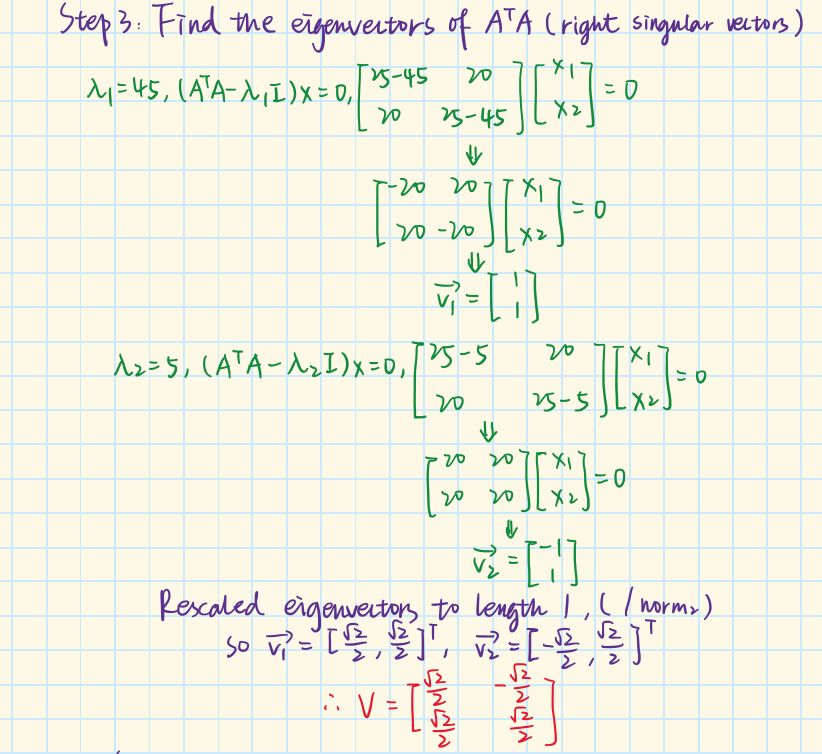 Step 3: Find the eigenvectors of AᵀA (right singular vectors)
λ₁=45, (AᵀA-λ₁I)x=0, [25-45 20; 20 25-45] [x₁; x₂] = 0
⇓
[-20 20; 20 -20] [x₁; x₂] = 0
⇓
v₁⃗ = [1; 1]
λ₂=5, (AᵀA-λ₂I)x=0, [25-5 20; 20 25-5] [x₁; x₂] = 0
⇓
[20 20; 20 20] [x₁; x₂] = 0
⇓
v₂⃗ = [-1; 1]
Rescaled eigenvectors to length 1, (/norm₂)
so v₁⃗ = [√2/2, √2/2]ᵀ, v₂⃗ = [-√2/2, √2/2]ᵀ
∴ V = [√2/2 -√2/2; √2/2 √2/2]